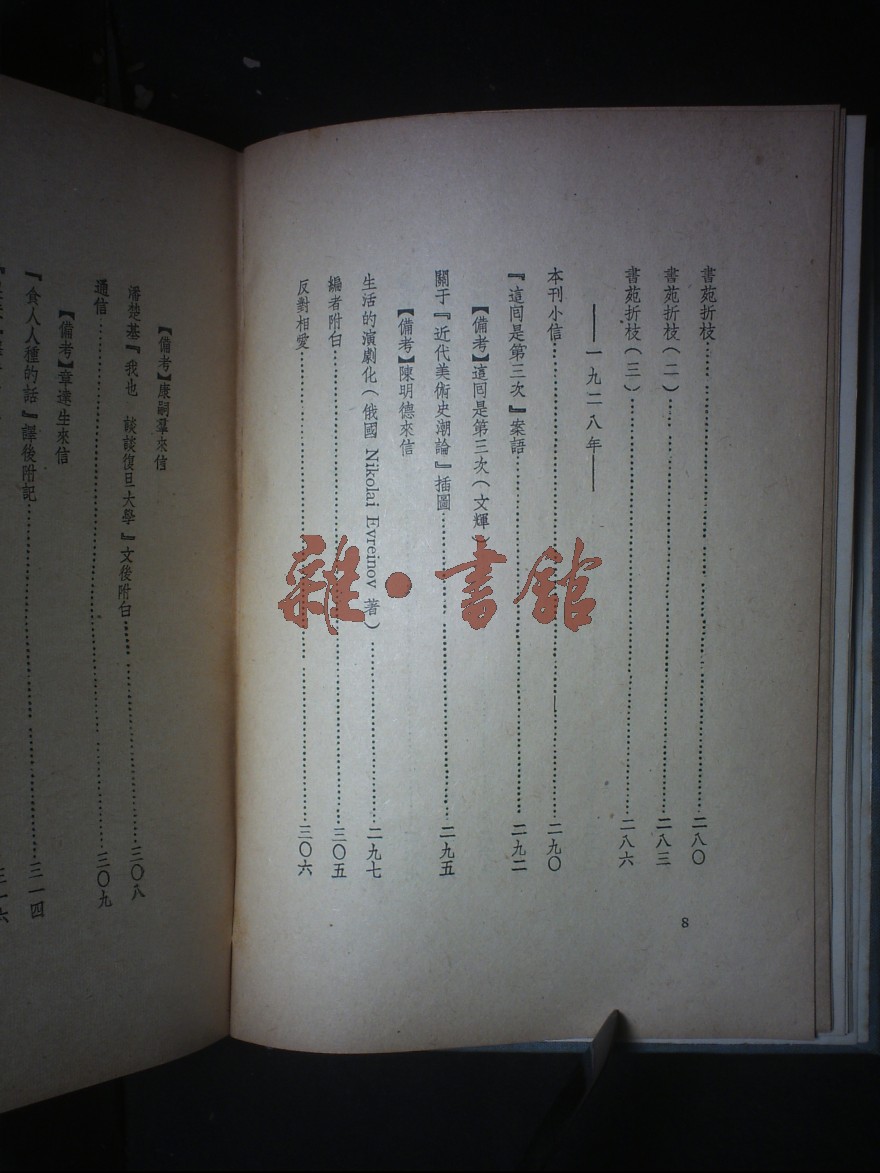 書苑折枝……二八〇
書苑折枝(二)……二八三
書苑折枝(三)……二八六
——一九二八年——
本刊小信……二九〇
『這囘是第三次』案語……二九二
【備考】這囘是第三次(文輝)
關于『近代美術史潮論』插圖……二九五
【備考】陳明德來信
生活的演劇化(俄國 Nikolai Evreinov 著)……二九七
編者附白……三〇五
反對相愛……三〇六
8
【備考】康嗣羣來信
潘楚基『我也 談談復旦大學』文後附白……三〇八
通信……三〇九
【備考】章達生來信
『食人人種的話』譯後附記……三一四
三一六
雜·書館